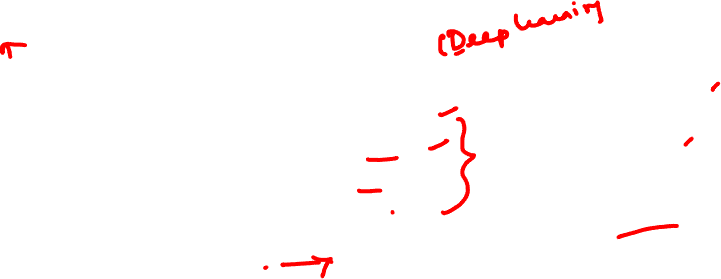 (Deep learning